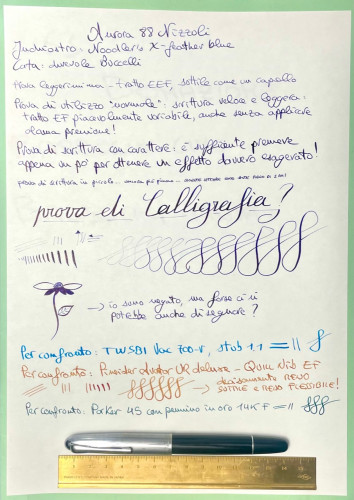 Aurora 88 Nizzoli
Inchiostro: Noodler's X-feather blue
Carta: durevole Boscelli
Prova leggerissima - tratto EEF, sottile come un capello
Prova di utilizzo "normale": scrittura veloce e leggera:
tratto EF piacevolmente variabile, anche senza applicare
alcuna pressione!
Prova di scrittura con carattere: è sufficiente premere
appena un po' per ottenere un effetto davvero esagerato!
prova di scrittura in piccolo... ancora più piccolo...
prova di Calligrafia?
→ io sono negato, ma forse ci si
potrebbe anche disegnare?
Per confronto: TWSBI Vac 700-R, stub 1.1
Per confronto: Pineider Avatar UR deluxe - Quill nib EF
→ decisamente meno
sottile e meno flessibile!
Per confronto: Parker 45 con pennino in oro 14K F